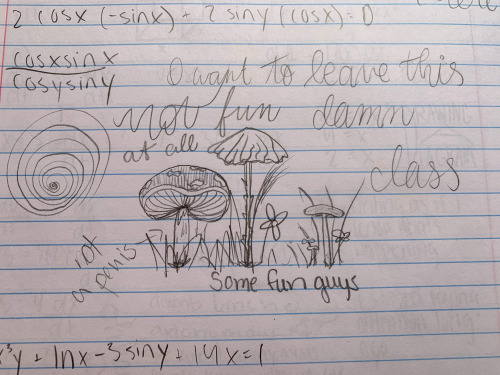 2 cosx (-sinx) + 2 siny (cosx) = 0
cosxsinx
cosysiny
I want to leave this
not fun damn
at all
class
not
a penis
Some fun guys
x³y + lnx - 3siny + 14x = 1